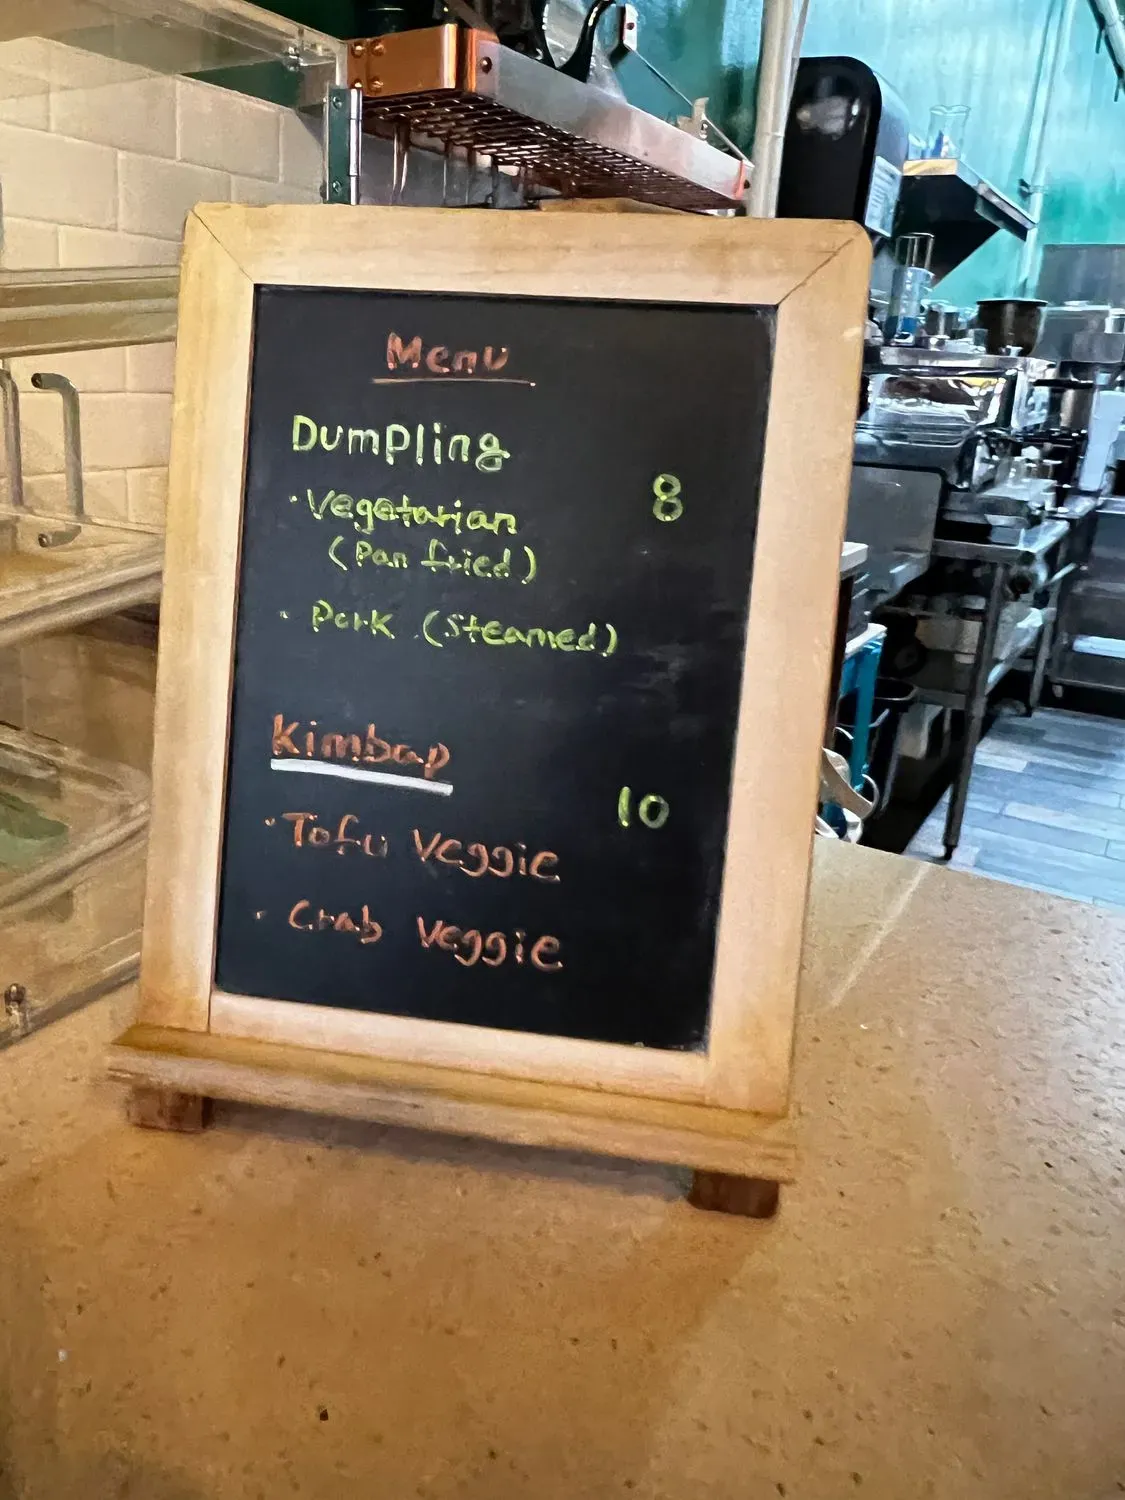 Menu
Dumpling
· Vegetarian 8
(Pan fried)
· Pork (Steamed)
Kimbap
10
· Tofu Veggie
· Crab Veggie